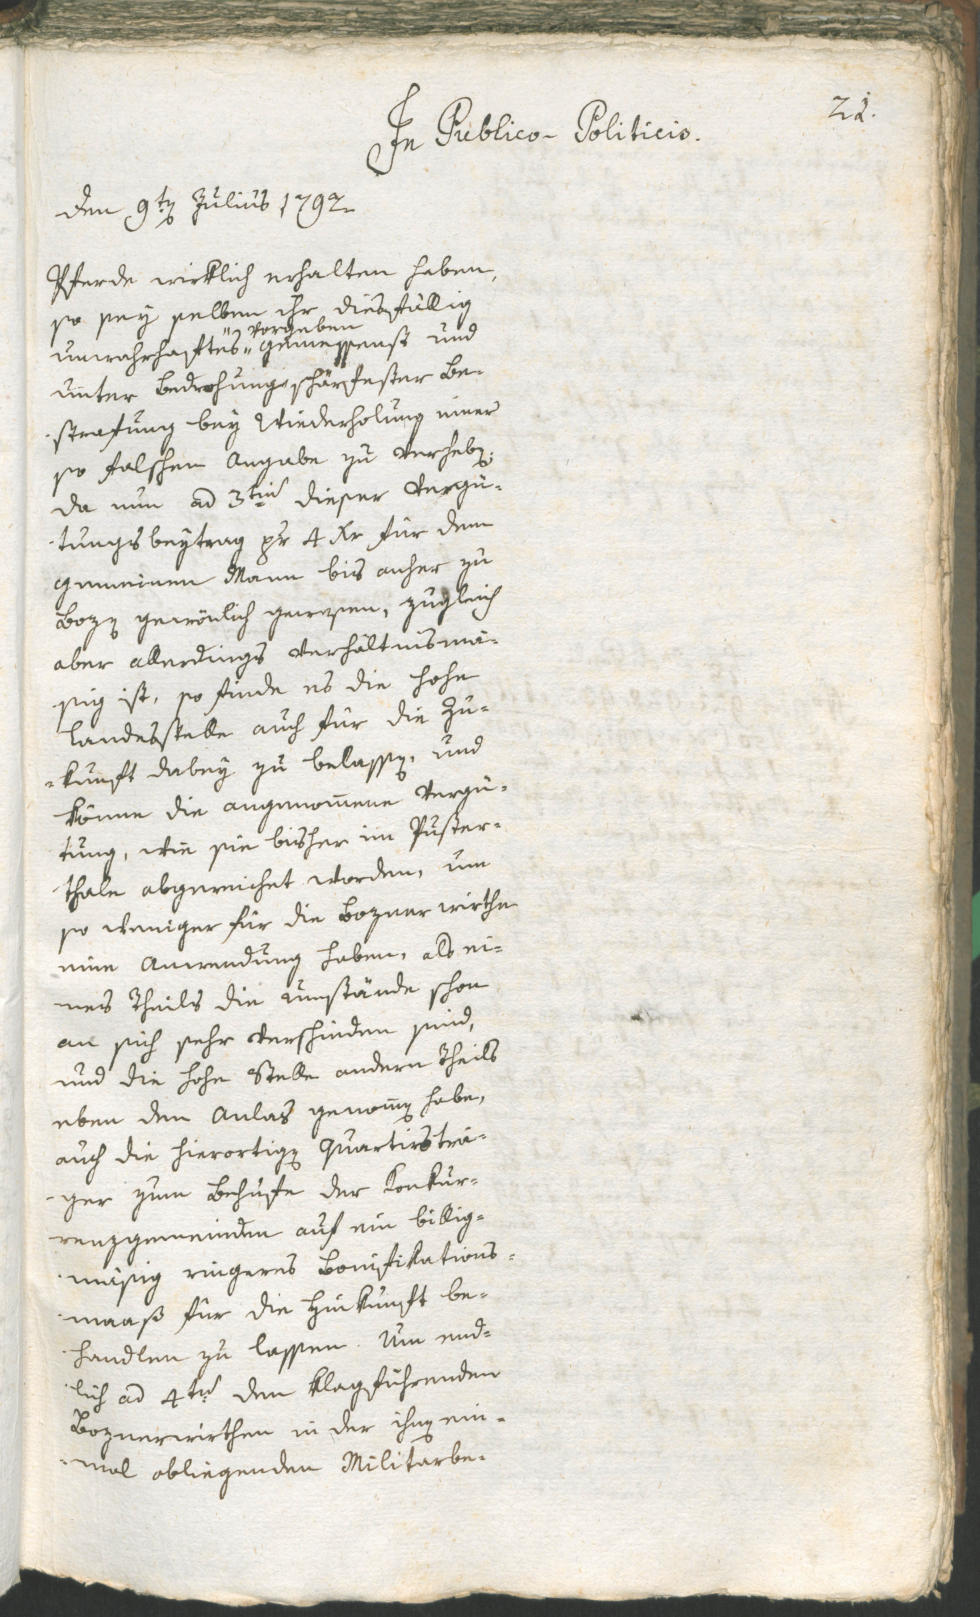 In Publico-Politicis.
21.
den 9ten Julius 1792.
Pferde wirklich erhalten haben,
so sey selben ihr diesfällig
unwahrhaftes "vorgeben" gemessenst und
unter Bedrohung schärfester Be-
strafung bey Wiederholung einer
so falschen Angabe zu verheben;
da nun ad 3tiũ dieser Vergü-
tungsbeytrag pr 4 Xr für dem
gemeinen Mann bis anher zu
Bozen gewönlich gewesen, zugleich
aber allerdings verhältnismä-
sig ist, so finde es die hohe
Landesstelle auch für die Zu-
kunft dabey zu belassen, und
könne die angenom̄ene Vergü-
tung, wie sie bisher im Puster-
thale abgereichet worden, um
so weniger für die Boznerwirthe
eine Anwendung haben, als ei-
nes Theils die Umstände schon
an sich sehr verschieden sind,
und die hohe Stelle andern Theils
eben den Anlas genom̄en habe,
auch die hierortigen Quartirsträ-
ger zum Behufe der Konkur-
renzgemeinden auf ein billig-
mäsig ringeres Bonifikations-
maaß für die Hinkunft be-
handlen zu lassen. Um end-
lich ad 4tũ den klagführenden
Boznerwirthen in der ihnen ein-
mal obliegenden Militarbe-